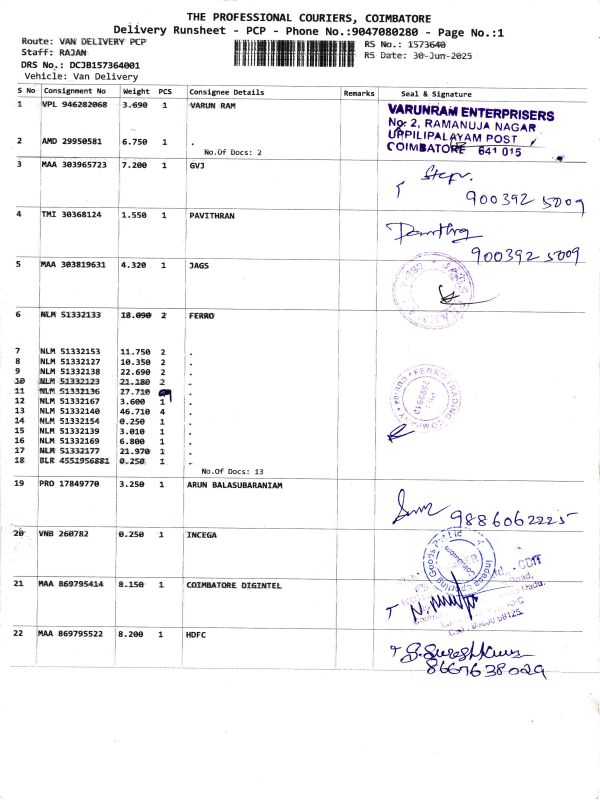 THE PROFESSIONAL COURIERS, COIMBATORE
Delivery Runsheet - PCP - Phone No.:9047080280 - Page No.:1
Route: VAN DELIVERY PCP
Staff: RAJAN
DRS No.: DCJB157364001
Vehicle: Van Delivery
RS No.: 1573640
RS Date: 30-Jun-2025
S No Consignment No Weight PCS Consignee Details Remarks Seal & Signature
1 VPL 946282068 3.690 1 VARUN RAM
VARUNRAM ENTERPRISERS
No: 2, RAMANUJA NAGAR
UPPILIPALAYAM POST
COIMBATORE 641 015
2 AMD 29950581 6.750 1 .
No.Of Docs: 2
3 MAA 303965723 7.200 1 GVJ
900392 5009
4 TMI 30368124 1.550 1 PAVITHRAN
900392 5009
5 MAA 303819631 4.320 1 JAGS
6 NLM 51332133 18.090 2 FERRO
7 NLM 51332153 11.750 2 .
8 NLM 51332127 10.350 2 .
9 NLM 51332138 22.690 2 .
10 NLM 51332123 21.180 2 .
11 NLM 51332136 27.710 .
12 NLM 51332167 3.600 1 .
13 NLM 51332140 46.710 4 .
14 NLM 51332154 0.250 1 .
15 NLM 51332139 3.010 1 .
16 NLM 51332169 6.800 1 .
17 NLM 51332177 21.970 1 .
18 BLR 4551956881 0.250 1 .
No.Of Docs: 13
FERRO TRADING COMPANY
19 PRO 17849770 3.250 1 ARUN BALASUBARANIAM
9886062225
20 VNB 260782 0.250 1 INCEGA
21 MAA 869795414 8.150 1 COIMBATORE DIGINTEL
22 MAA 869795522 8.200 1 HDFC
8667638029